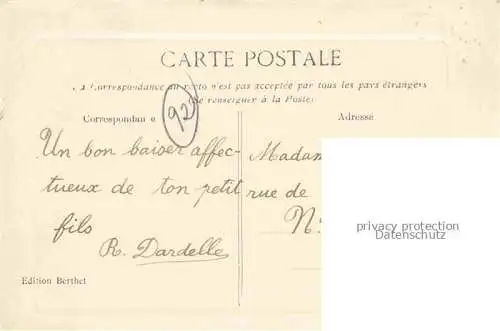 CARTE POSTALE
La Correspondance au recto n'est pas acceptée par tous les pays étrangers
(Se renseigner à la Poste)
Correspondance
92
Adresse
Un bon baiser affec-
tueux de ton petit
fils
R. Dardelle
Madam
rue de
N
privacy protection
Datenschutz
Edition Berthet